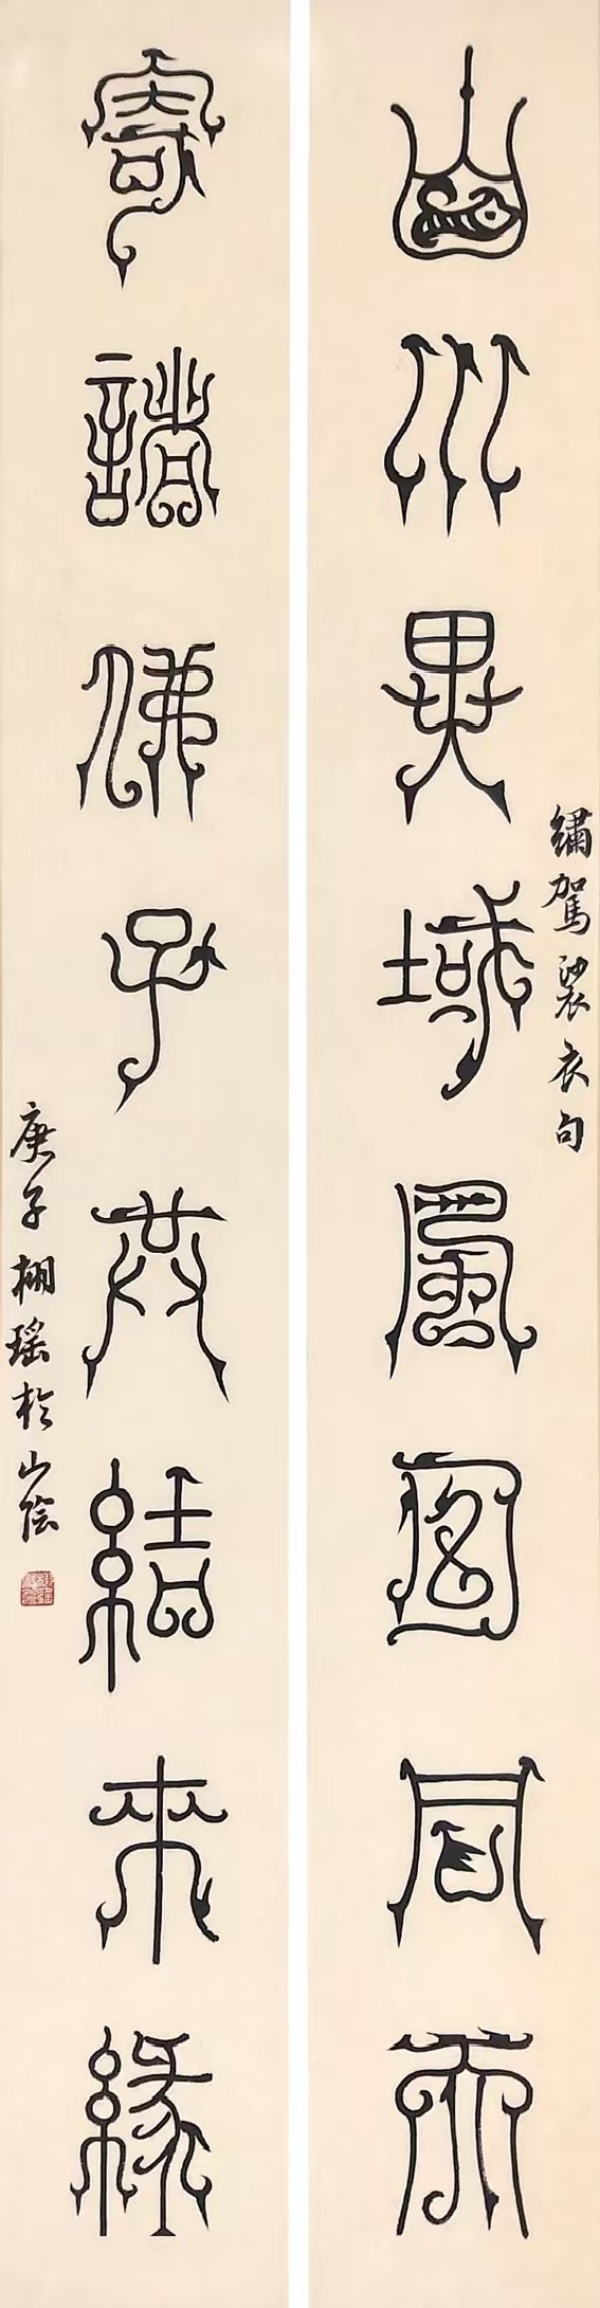 山川異域風月同天
繡駕袈裟衣句
寄諸佛子共結來緣
庚子棚瑶於山陰